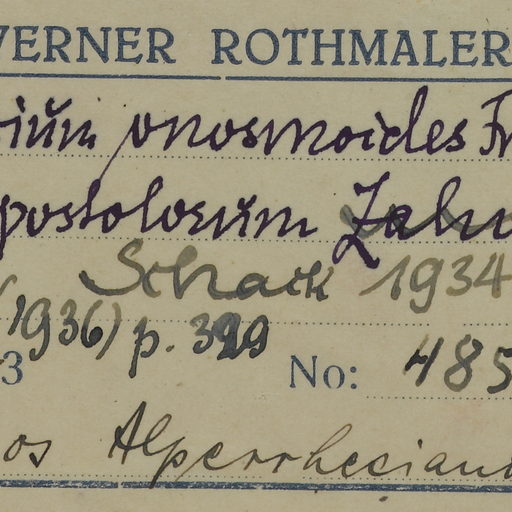 WERNER ROTHMALER
ium onosmoides Fr
postolorum Zahn
Schack 1934
1936) p. 399
3 No: 485
os Alperrhesiana